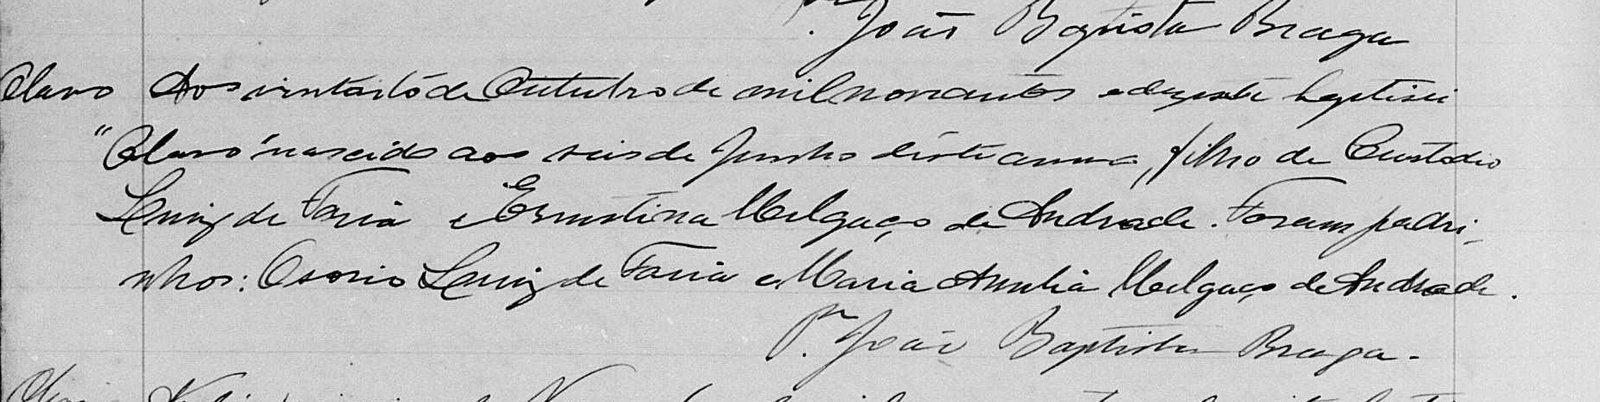 João Baptista Braga
Olavo Aos vinte oito de Outubro de mil novecentos e dezesete baptisei
"Olavo" nascido aos seis de Junho deste anno, filho de Custodio
Luiz de Faria e Ernestina Melgaço de Andrade. Foram padri-
nhos: Osorio Luiz de Faria e Maria Amelia Melgaço de Andrade.
Pe. João Baptista Braga.